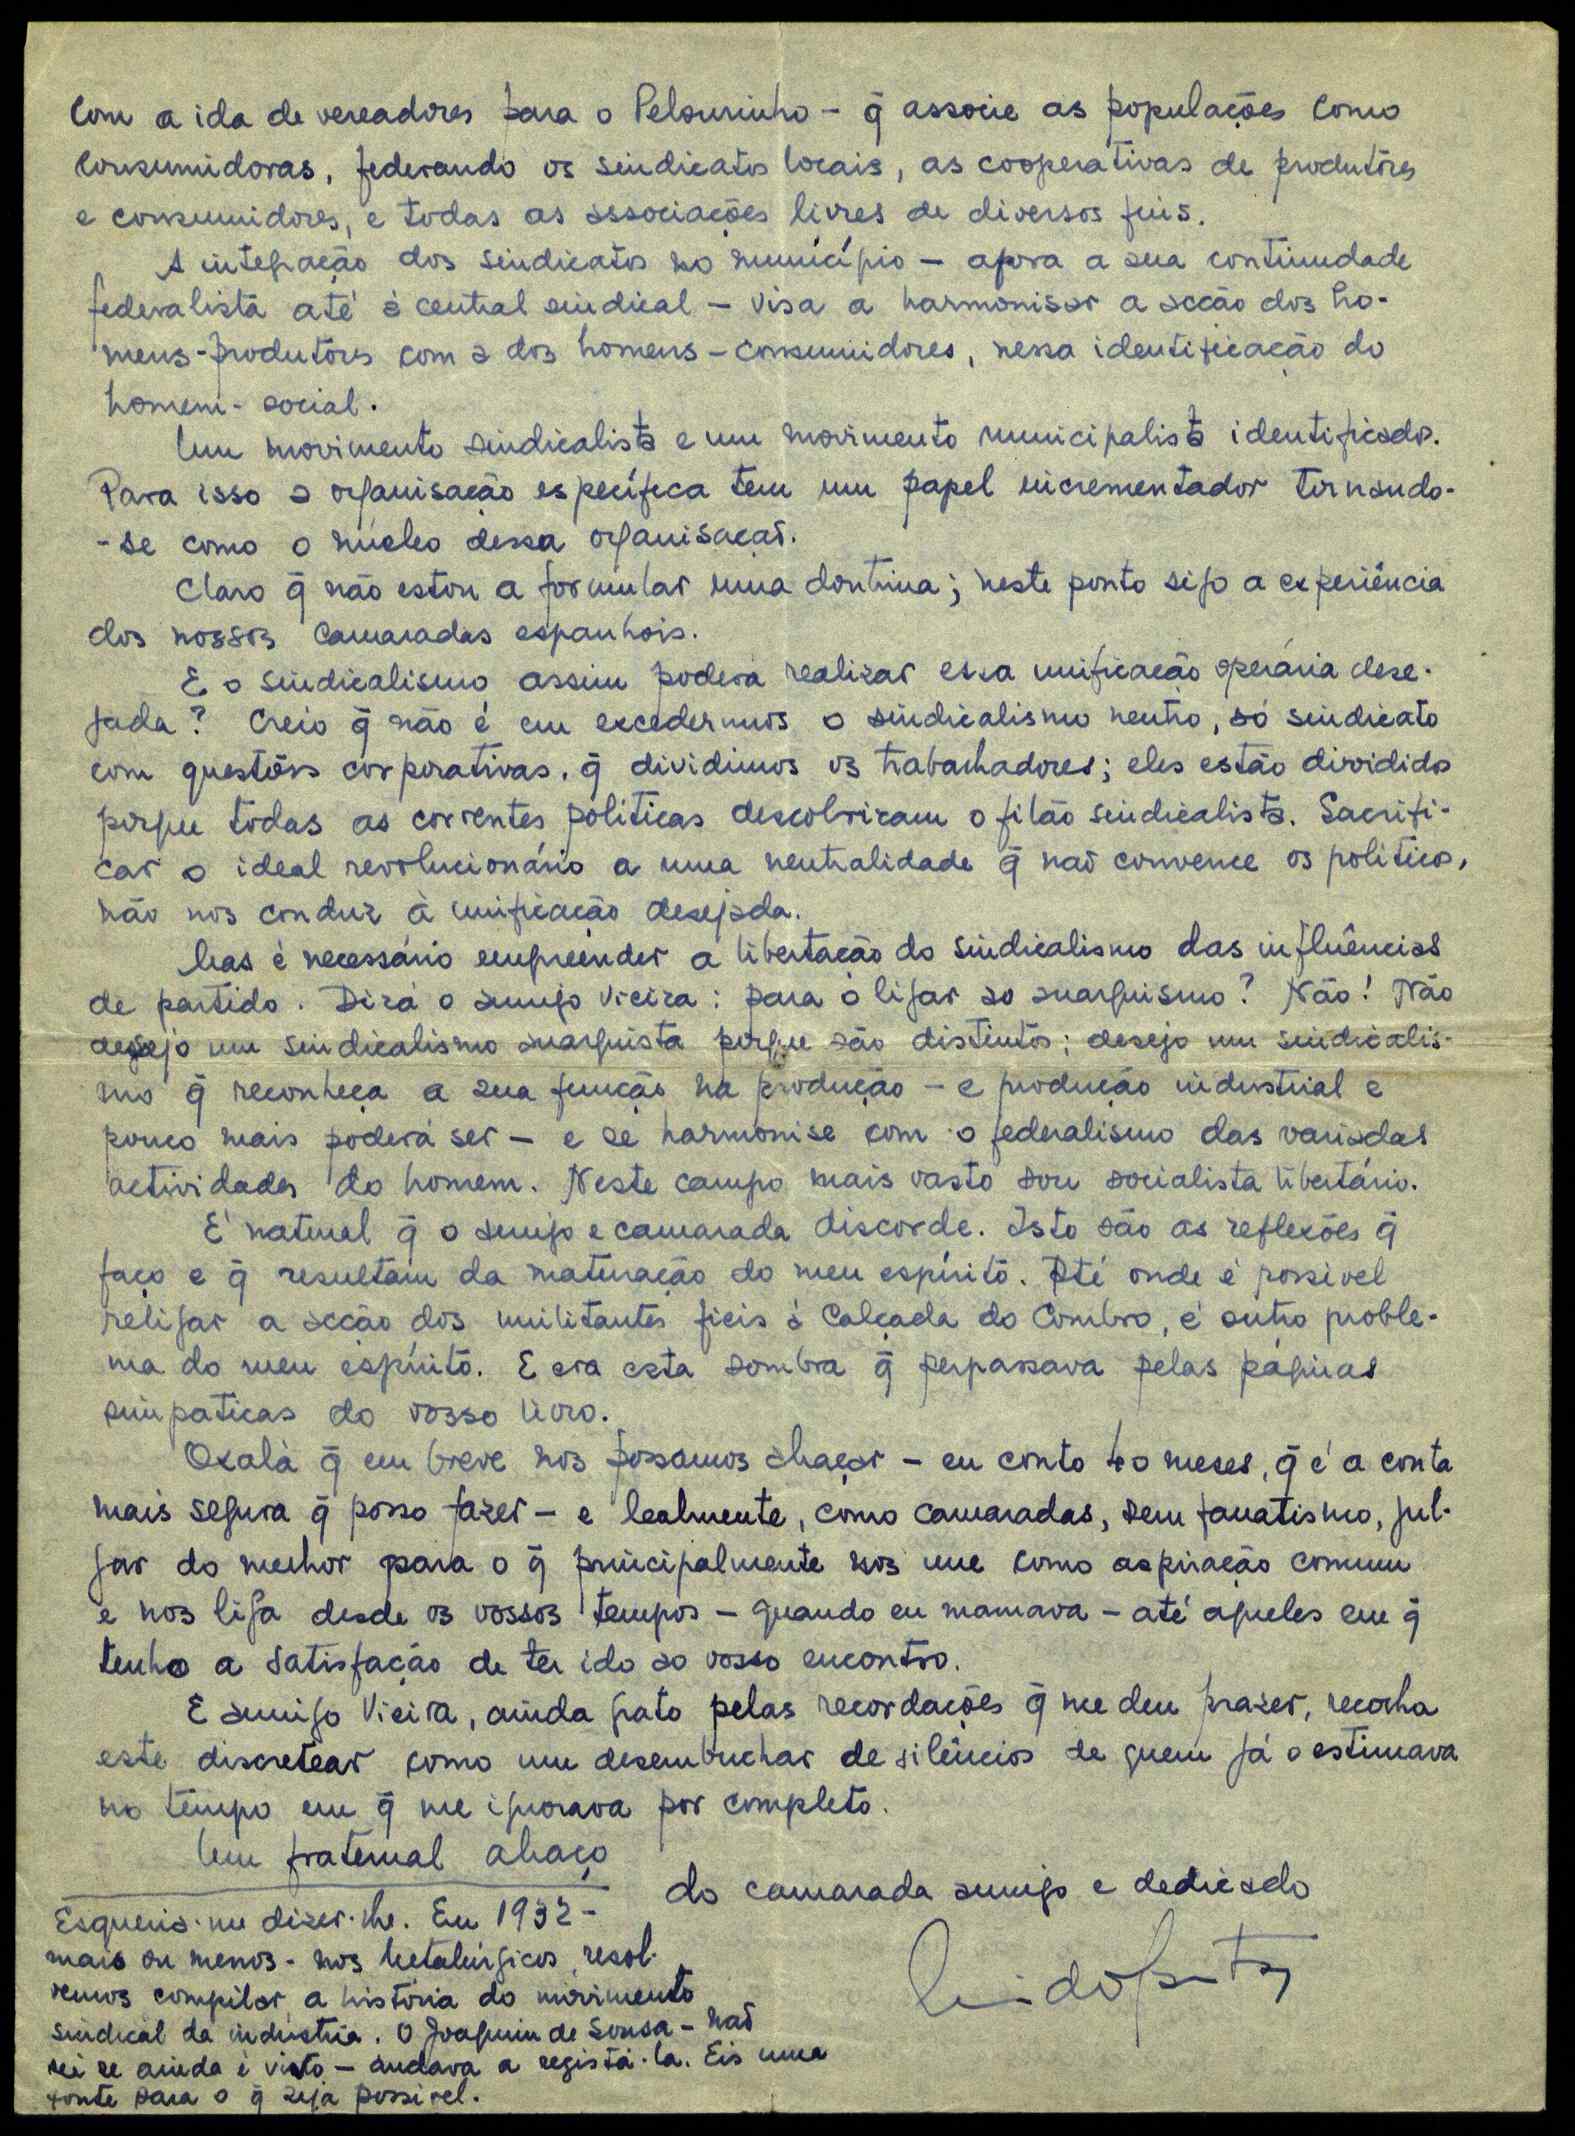 com a ida de vereadores para o Pelourinho - q̄ associe as populações como
consumidoras, federando os sindicatos locais, as cooperativas de produtôres
e consumidores, e todas as associações livres de diversos fins.
A integração dos sindicatos no município - afora a sua continuidade
federalista até à central sindical - visa a harmonisar a acção dos ho-
mens-produtores com a dos homens-consumidores, nessa identificação do
homem-social.
Um movimento sindicalista e um movimento municipalista identificados.
Para isso a organisação específica tem um papel incrementador tornando-
-se como o núcleo dessa organisação.
Claro q̄ não estou a formular uma doutrina; neste ponto sigo a experiência
dos nossos camaradas espanhois.
E o sindicalismo assim poderá realizar essa unificação operária dese-
jada? Creio q̄ não é em excedermos o sindicalismo neutro, só sindicato
com questões corporativas, q̄ dividimos os trabalhadores; eles estão divididos
porque todas as correntes políticas descobriram o filão sindicalista. Sacrifi-
car o ideal revolucionário a uma neutralidade q̄ não convence os politicos,
não nos conduz à unificação desejada.
Mas é necessário empreender a libertação do sindicalismo das influências
de partido. Dirá o amigo Vieira: para o ligar ao anarquismo? Não! Não
desejo um sindicalismo anarquista porque são distintos; desejo um sindicalis-
mo q̄ reconheça a sua função na produção - e produção industrial e
pouco mais poderá ser - e se harmonise com o federalismo das variadas
actividades do homem. Neste campo mais vasto sou socialista libertário.
É natural q̄ o amigo e camarada discorde. Isto são as reflexões q̄
faço e q̄ resultam da maturação do meu espírito. Até onde é possivel
religar a acção dos militantes fieis à Calçada do Combro, é outro proble-
ma do meu espírito. E era esta sombra q̄ perpassava pelas páginas
simpaticas do vosso livro.
Oxalá q̄ em breve nos possamos abraçar - eu conto 40 meses, q̄ é a conta
mais segura q̄ posso fazer - e lealmente, como camaradas, sem fanatismo, jul-
gar do melhor para o q̄ principalmente nos une como aspiração comum
e nos liga desde os vossos tempos - quando eu mamava - até aqueles em q̄
tenho a satisfação de ter ido ao vosso encontro.
E amigo Vieira, ainda grato pelas recordações q̄ me deu prazer, recolha
este discretear como um desembuchar de silêncios de quem já o estimava
no tempo em q̄ me ignorava por completo.
Um fraternal abraço
do camarada amigo e dedicado
Esquecia-me dizer-lhe. Em 1932 -
mais ou menos - nos Metalúrgicos, resol-
vemos compilar a história do movimento
sindical da indústria. O Joaquim de Sousa - não
sei se ainda é vivo - andava a registá-la. Eis uma
fonte para o q̄ seja possivel.